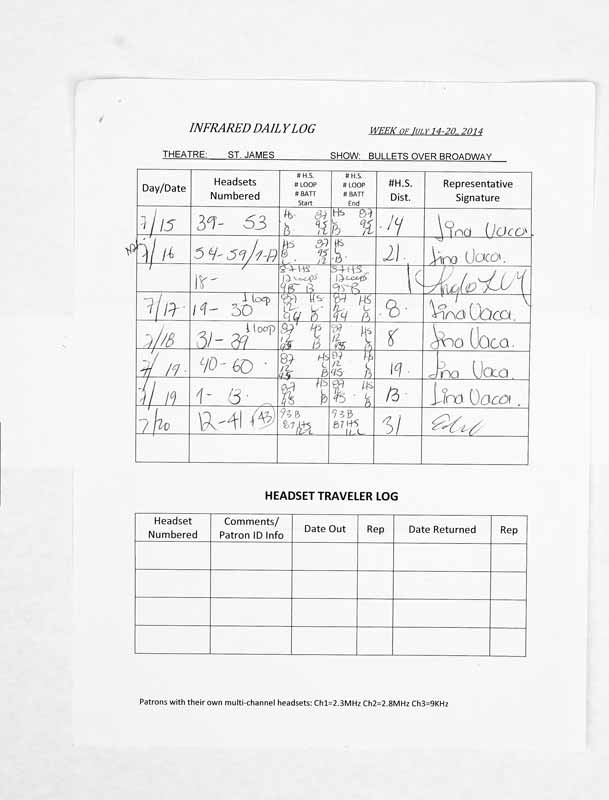 INFRARED DAILY LOG WEEK OF JULY 14-20, 2014
THEATRE: ST. JAMES SHOW: BULLETS OVER BROADWAY
Day/Date Headsets Numbered # H.S. # LOOP # BATT Start # H.S. # LOOP # BATT End #H.S. Dist. Representative Signature
7/15 39- 53 HS 87 L 95 B 12 HS 87 L 95 B 12 14 Lina Vaca
7/16 54-59/1-17 HS 87 B 95 L 12 HS L B 21. Lina Vaca.
18- 87 HS 12 loops 95 B 87 HS 12 loops 95 B 1
7/17 19- 30 1 loop 87 HS 12 L 94 B 87 HS 12 L 94 B 8. Lina Vaca.
7/18 31-39 1 loop 87 HS 12 L 95 B 87 HS 12 L 95 B 8 Lina Vaca.
7/19. 40-60. 87 HS 12 L 95 B 87 HS 12 L 95 B 19. Lina Vaca.
7/19 1- 13. 87 HS 12 L 95 B 87 HS 12 L 95 B 13. Lina Vaca.
7/20 12-41 +43 93 B 87 HS 12 L 93 B 87 HS 12 L 31
HEADSET TRAVELER LOG
Headset Numbered Comments/ Patron ID Info Date Out Rep Date Returned Rep
Patrons with their own multi-channel headsets: Ch1=2.3MHz Ch2=2.8MHz Ch3=9KHz